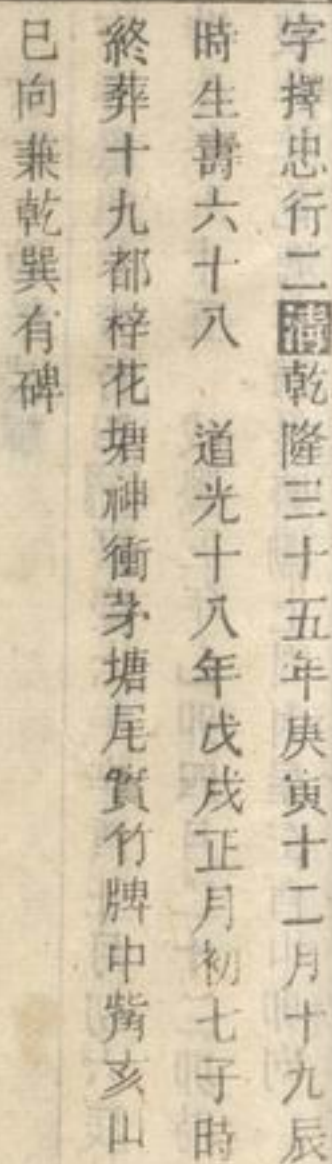 字擇忠行二清乾隆三十五年庚寅十二月十九辰
時生壽六十八　道光十八年戊戌正月初七子時
終葬十九都梓花塘神衝茅塘尾實竹牌中嘴亥山
巳向兼乾巽有碑